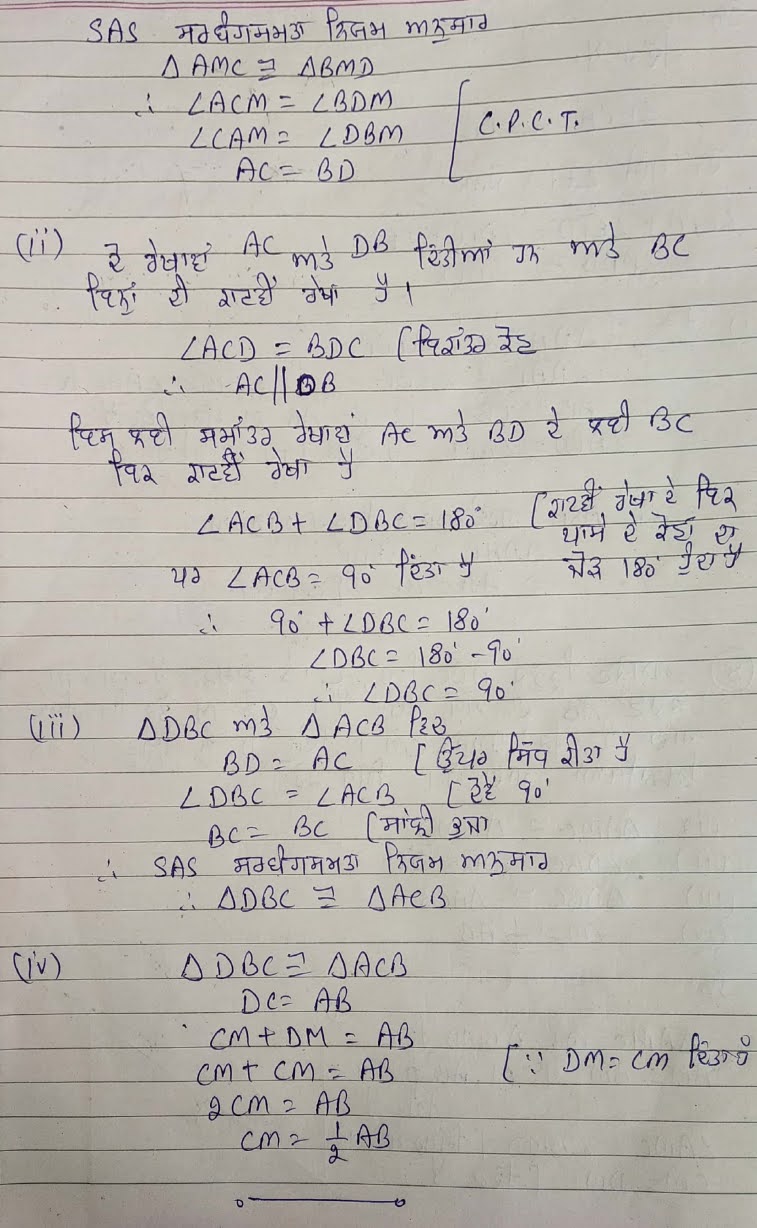 SAS ਸਰਬੰਗਸਮਤਾ ਨਿਯਮ ਅਨੁਸਾਰ
Δ AMC ≅ ΔBMD
∴ ∠ACM = ∠BDM
∠CAM = ∠DBM [C.P.C.T.
AC = BD
(ii) ਦੋ ਰੇਖਾਵਾਂ AC ਅਤੇ DB ਦਿੱਤੀਆਂ ਹਨ ਅਤੇ BC
ਦੀ ਕਾਟਵੀਂ ਰੇਖਾ ਹੈ।
∠ACD = BDC [ਇਕਾਂਤਰ ਕੋਣ
∴ AC || DB
ਇਸ ਲਈ ਸਮਾਂਤਰ ਰੇਖਾਵਾਂ AC ਅਤੇ BD ਦੇ ਲਈ BC
ਇਕ ਕਾਟਵੀਂ ਰੇਖਾ ਹੈ
∠ACB + ∠DBC = 180° [ਕਾਟਵੀਂ ਰੇਖਾ ਦੇ ਇਕ
ਪਾਸੇ ਦੇ ਕੋਣਾਂ ਦਾ
ਜੋੜ 180° ਹੁੰਦਾ ਹੈ
ਪਰ ∠ACB = 90° ਦਿੱਤਾ ਹੈ
∴ 90° + ∠DBC = 180°
∠DBC = 180° - 90°
∴ ∠DBC = 90°
(iii) ΔDBC ਅਤੇ ΔACB ਵਿੱਚ
BD = AC [ਉੱਪਰ ਸਿੱਧ ਕੀਤਾ ਹੈ
∠DBC = ∠ACB [ਦੋਵੇਂ 90°
BC = BC [ਸਾਂਝੀ ਭੁਜਾ
∴ SAS ਸਰਬੰਗਸਮਤਾ ਨਿਯਮ ਅਨੁਸਾਰ
∴ ΔDBC ≅ ΔACB
(iv) ΔDBC ≅ ΔACB
DC = AB
CM + DM = AB
CM + CM = AB [∵ DM = CM ਦਿੱਤਾ ਹੈ
2CM = AB
CM = 1/2 AB